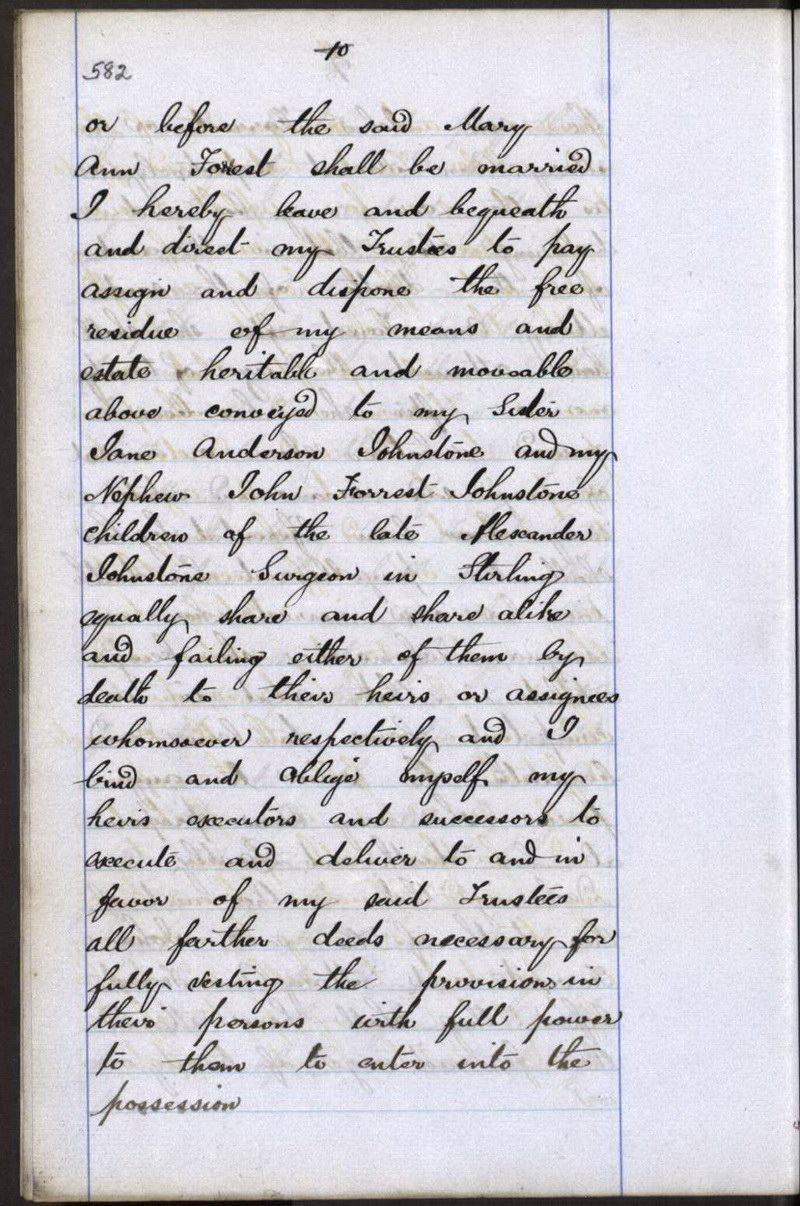 10
582
or before the said Mary
Ann Forrest shall be married
I hereby leave and bequeath
and direct my Trustees to pay
assign and dispone the free
residue of my means and
estate heritable and moveable
above conveyed to my Sister
Jane Anderson Johnstone and my
Nephew John Forrest Johnstone
children of the late Alexander
Johnstone Surgeon in Stirling
equally share and share alike
and failing either of them by
death to their heirs or assignees
whomsoever respectively and I
bind and oblige myself my
heirs executors and successors to
execute and deliver to and in
favor of my said Trustees
all farther deeds necessary for
fully vesting the provisions in
their persons with full power
to them to enter into the
possession